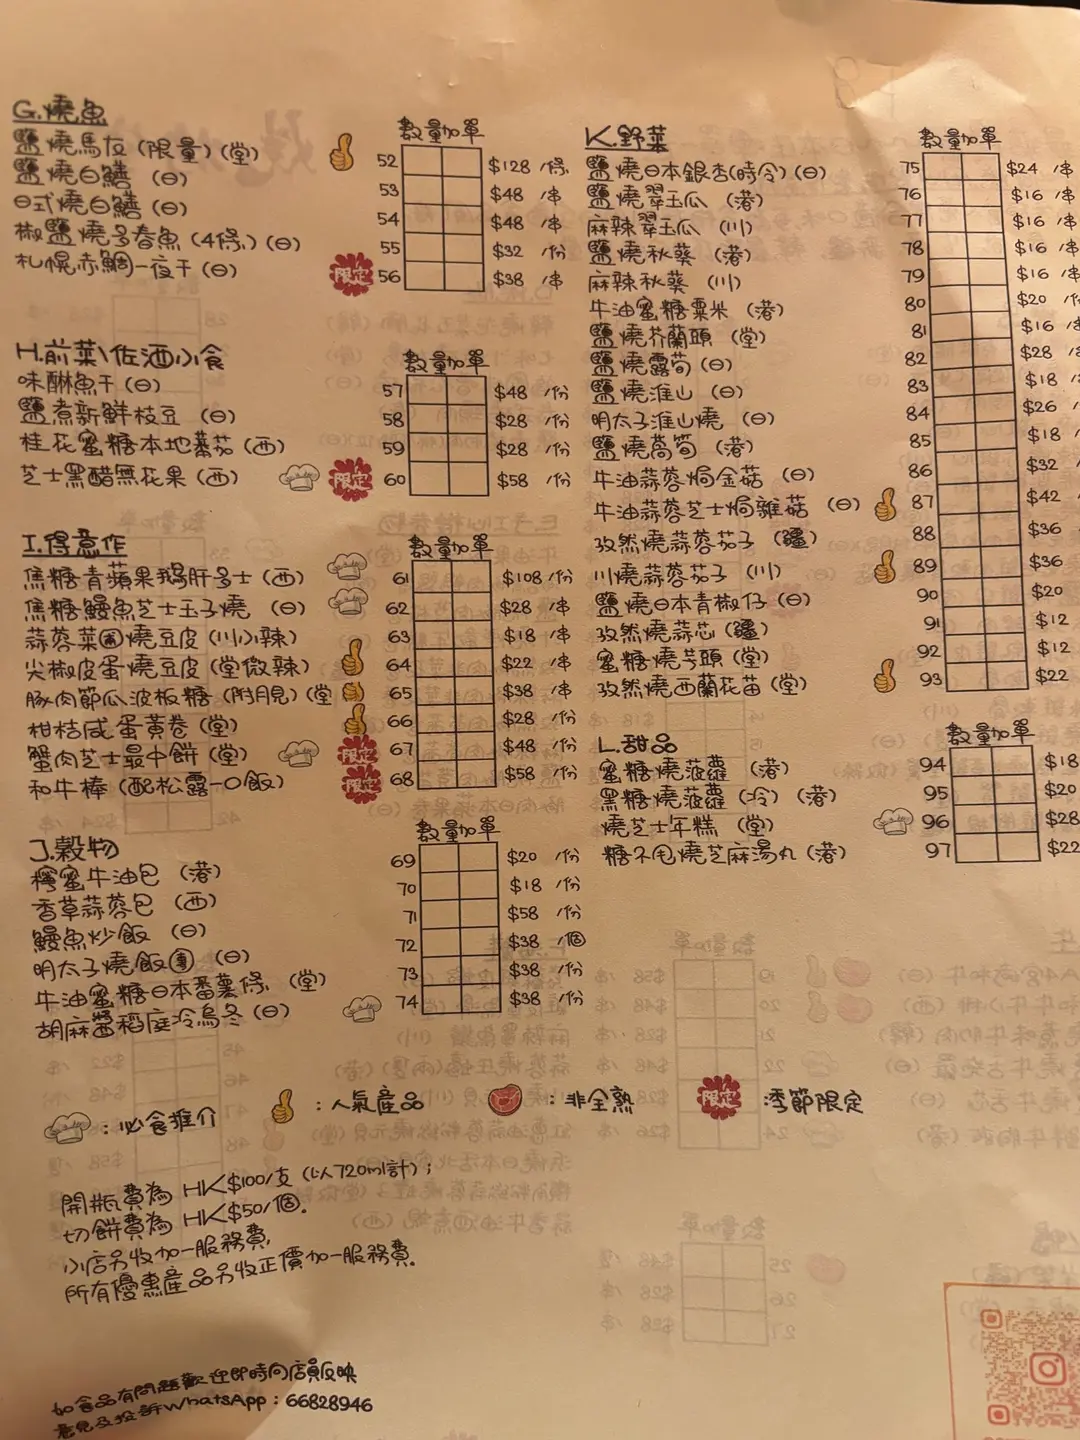 G.燒魚
數量 加單
鹽燒馬友 (限量) (堂) 52 $128 /條
鹽燒白鱔 (日) 53 $48 /串
日式燒白鱔 (日) 54 $48 /串
椒鹽燒多春魚 (4條) (日) 55 $32 /份
札幌赤鯛一夜干 (日) 限定 56 $38 /串
H.前菜\佐酒小食
數量 加單
味醂魚干 (日) 57 $48 /份
鹽煮新鮮枝豆 (日) 58 $28 /份
桂花蜜糖本地蕃茄 (西) 59 $28 /份
芝士黑醋無花果 (西) 限定 60 $58 /份
I.得意作
數量 加單
焦糖青蘋果鵝肝多士 (西) 61 $108 /份
焦糖鰻魚芝士玉子燒 (日) 62 $28 /串
蒜蓉菜圃燒豆皮 (川小辣) 63 $18 /串
尖椒皮蛋燒豆皮 (堂微辣) 64 $22 /串
豚肉節瓜波板糖 (附月見) (堂 65 $38 /串
柑桔咸蛋黃卷 (堂) 66 $28 /份
蟹肉芝士最中餅 (堂) 限定 67 $48 /份
和牛棒 (配松露一口飯) 限定 68 $58 /份
J.穀物
數量 加單
檸蜜牛油包 (港) 69 $20 /份
香草蒜蓉包 (西) 70 $18 /份
鰻魚炒飯 (日) 71 $58 /份
明太子燒飯團 (日) 72 $38 /個
牛油蜜糖日本番薯條 (堂) 73 $38 /份
胡麻醬稻庭冷烏冬 (日) 74 $38 /份
K.野菜
數量 加單
鹽燒日本銀杏(時令) (日) 75 $24 /串
鹽燒翠玉瓜 (港) 76 $16 /串
麻辣翠玉瓜 (川) 77 $16 /串
鹽燒秋葵 (港) 78 $16 /串
麻辣秋葵 (川) 79 $16 /串
牛油蜜糖粟米 (港) 80 $20 /份
鹽燒芥蘭頭 (堂) 81 $16 /串
鹽燒露荀 (日) 82 $28 /串
鹽燒淮山 (日) 83 $18 /串
明太子淮山燒 (日) 84 $26 /串
鹽燒萵筍 (港) 85 $18 /串
牛油蒜蓉焗金菇 (日) 86 $32 /
牛油蒜蓉芝士焗雜菇 (日) 87 $42 /
孜然燒蒜蓉茄子 (疆) 88 $36
川燒蒜蓉茄子 (川) 89 $36
鹽燒日本青椒仔 (日) 90 $20
孜然燒蒜芯 (疆) 91 $12
蜜糖燒芋頭 (堂) 92 $12
孜然燒西蘭花苗 (堂) 93 $22
L.甜品
數量 加單
蜜糖燒菠蘿 (港) 94 $18
黑糖燒菠蘿 (冷) (港) 95 $20
燒芝士年糕 (堂) 96 $28
糖不甩燒芝麻湯丸 (港) 97 $22
: 必食推介 : 人氣產品 : 非全熟 限定 : 季節限定
開瓶費為 HK$100/支 (以720ml計) ;
切餅費為 HK$50/個.
小店另收加一服務費,
所有優惠產品另收正價加一服務費.
如食品有問題歡迎即時向店員反映
意見及投訴WhatsApp : 66828946